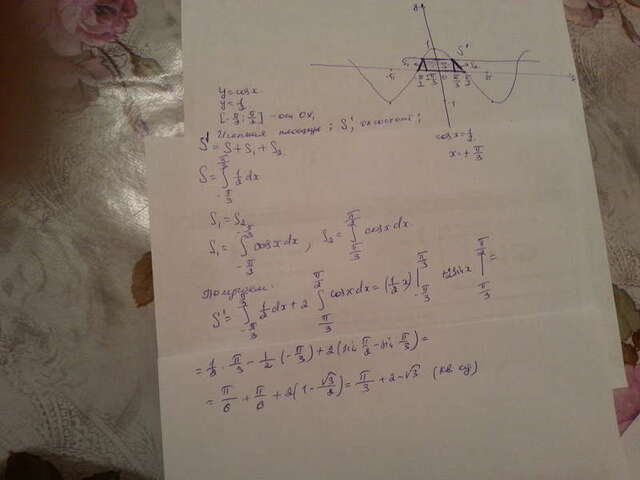 y = cos x
y = 1/2
[-π/2; π/2] - ось OX,
S' = S + S₁ + S₂
Искомая площадь: S', означает:
S = ∫_{-π/3}^{π/3} 1/2 dx
S₁ = S₂
S₁ = ∫_{-π/2}^{-π/3} cos x dx, S₂ = ∫_{π/3}^{π/2} cos x dx
Получаем:
S' = ∫_{-π/3}^{π/3} 1/2 dx + 2 ∫_{π/3}^{π/2} cos x dx = (1/2 x) |_{-π/3}^{π/3} + 2 sin x |_{π/3}^{π/2} =
= 1/2 · π/3 - 1/2 · (-π/3) + 2 (sin π/2 - sin π/3) =
= π/6 + π/6 + 2(1 - √3/2) = π/3 + 2 - √3 (кв. ед)
cos x = 1/2
x = ± π/3
S'